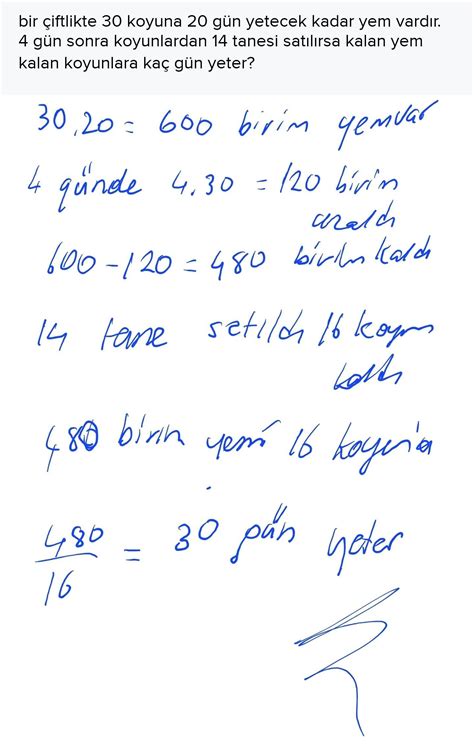 bir çiftlikte 30 koyuna 20 gün yetecek kadar yem vardır.
4 gün sonra koyunlardan 14 tanesi satılırsa kalan yem
kalan koyunlara kaç gün yeter?
30.20 = 600 birim yem var
4 günde 4.30 = 120 birim
azaldı
600-120 = 480 birim kaldı
14 tane satıldı 16 koyun
kaldı
480 birim yemi 16 koyuna
480/16 = 30 gün yeter